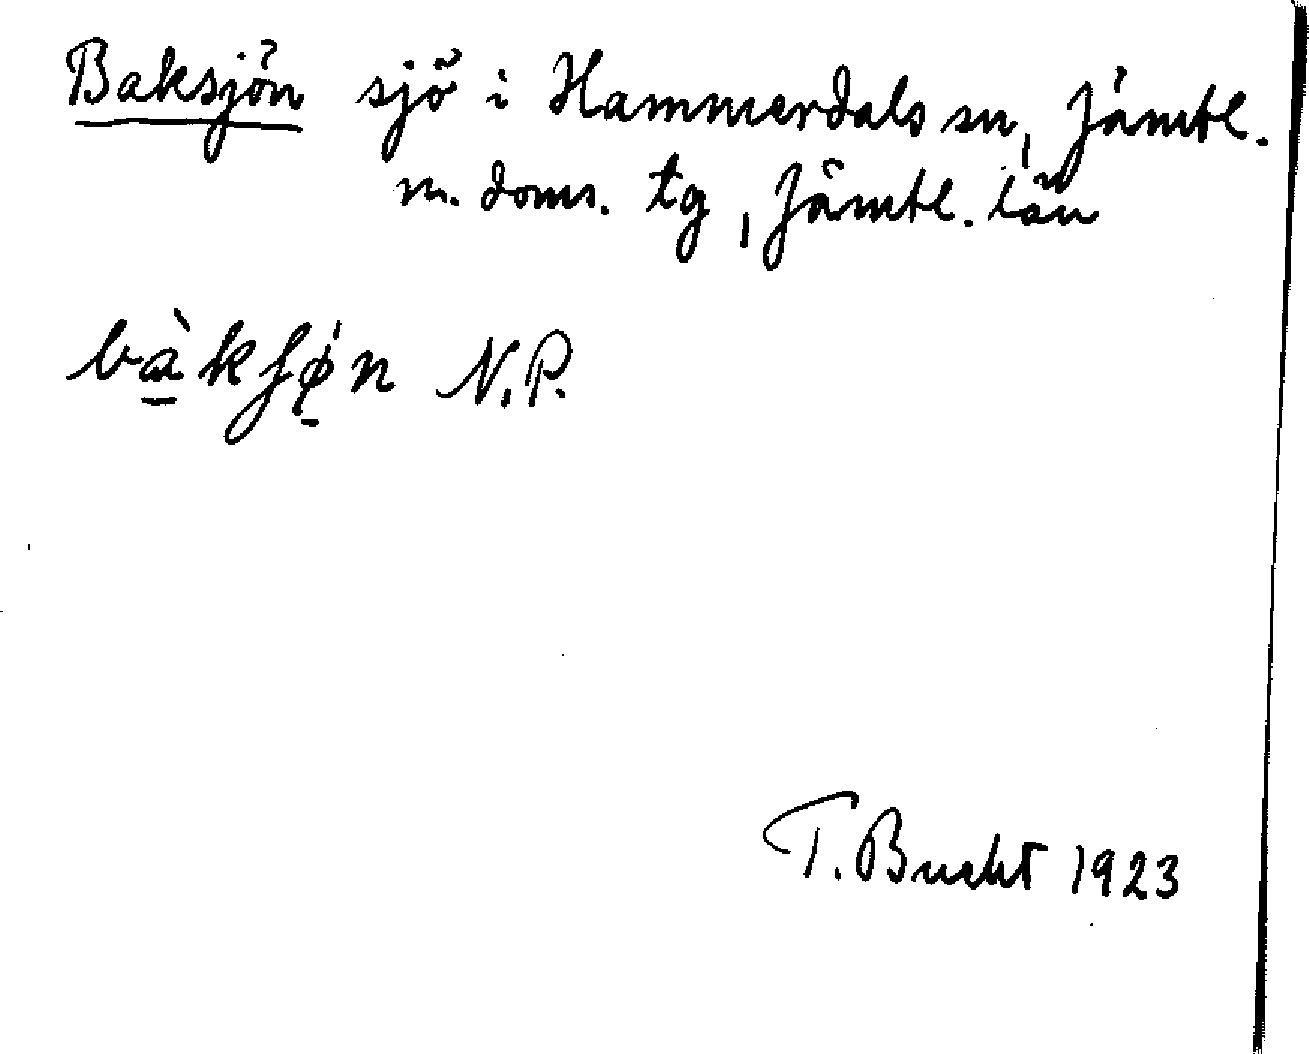 Baksjön sjö i Hammerdals sn, Jämtl.
n. doms. tg, Jämtl. län
bàkʃø̀n N.P.
T. Bucht 1923